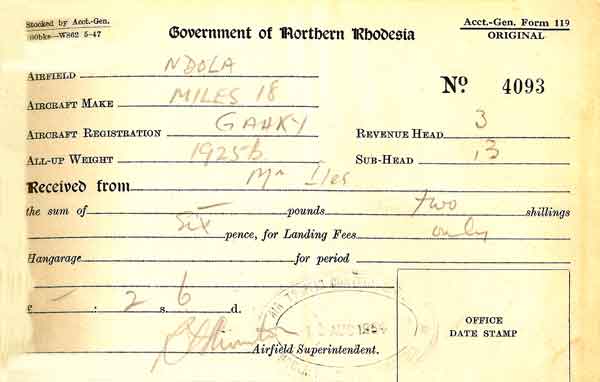 Stocked by Acct.-Gen.
Acct.-Gen. Form 119
ORIGINAL
W862 5-47
Government of Northern Rhodesia
AIRFIELD NDOLA
No. 4093
AIRCRAFT MAKE MILES 18
AIRCRAFT REGISTRATION GAHKY
REVENUE HEAD 3
ALL-UP WEIGHT 1925 lb
SUB-HEAD 13
Received from Mr Iles
the sum of — pounds two shillings
six pence, for Landing Fees only
Hangarage for period
£ — : 2 s. 6 d.
OFFICE
DATE STAMP
AUG
Airfield Superintendent.